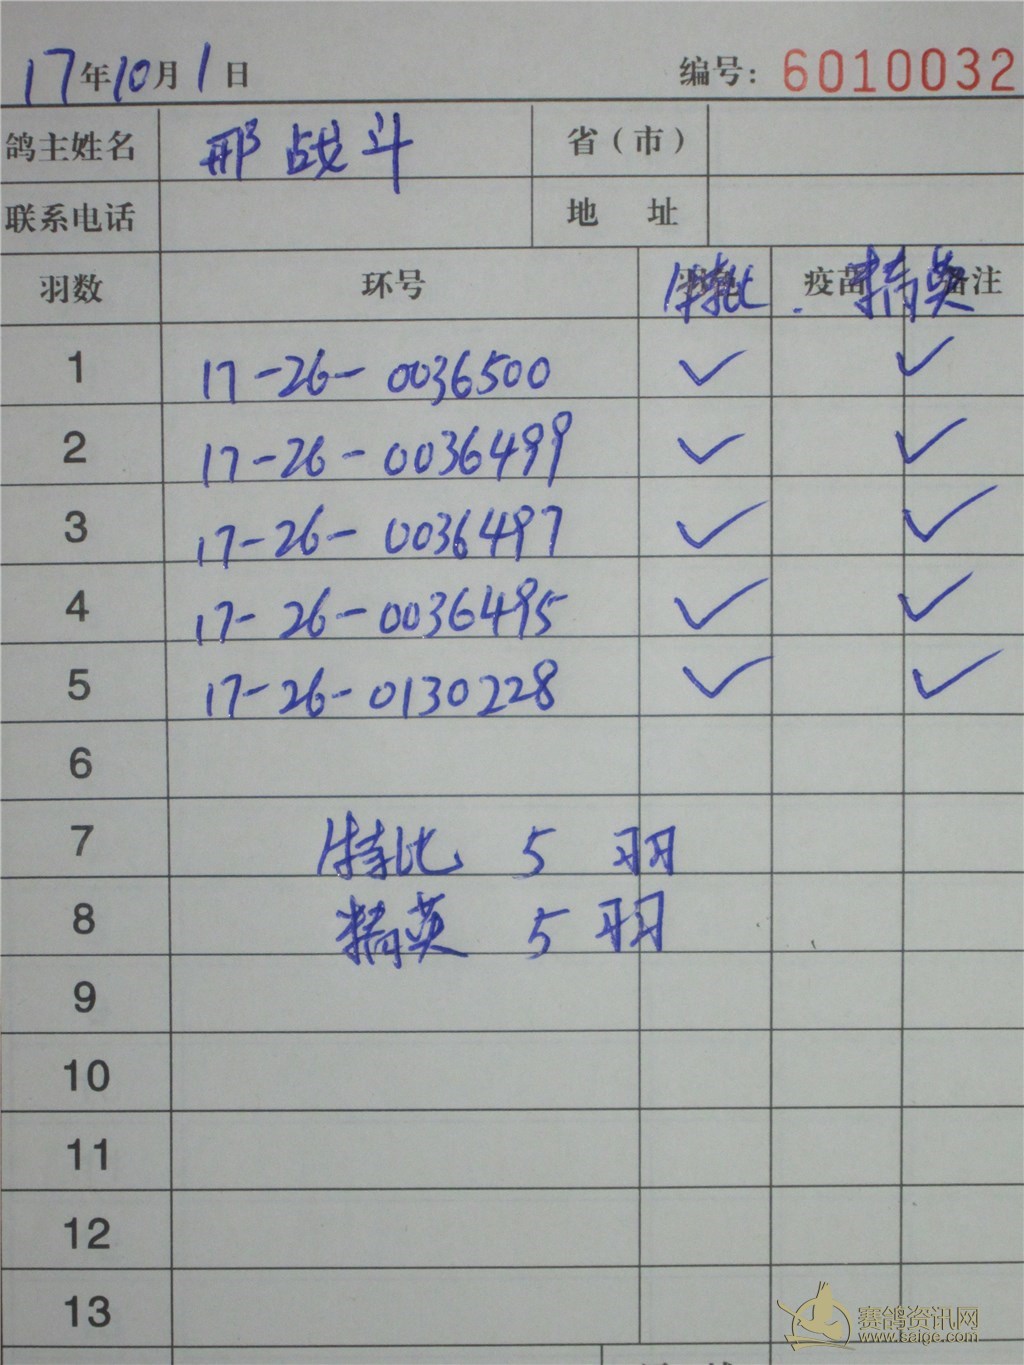 17年10月1日 编号: 6010032
鸽主姓名 邢战斗 省(市)
联系电话 地 址
羽数 环号 特比 疫苗 精英 备注
1 17-26-0036500 ✓ ✓
2 17-26-0036499 ✓ ✓
3 17-26-0036497 ✓ ✓
4 17-26-0036495 ✓ ✓
5 17-26-0130228 ✓ ✓
6
7 特比 5 羽
8 精英 5 羽
9
10
11
12
13
赛鸽资讯网
www.saige.com